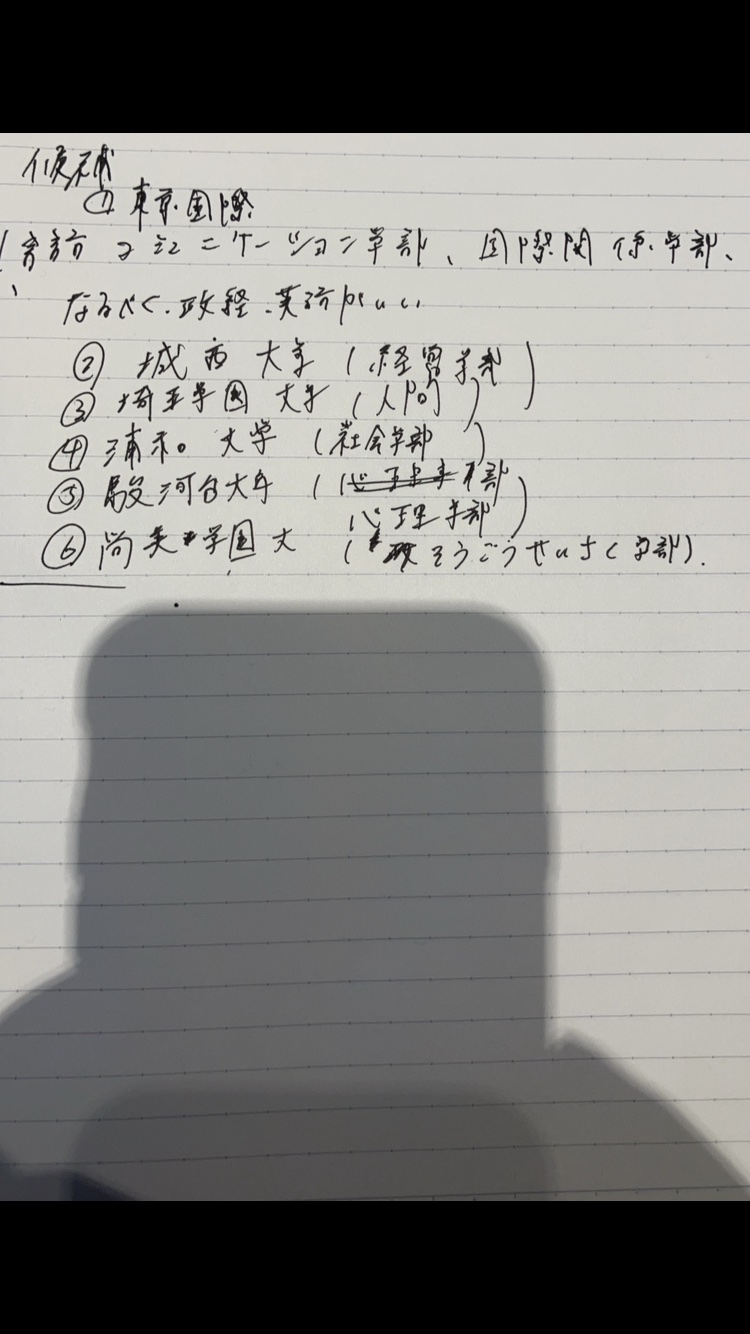 候補
① 東京国際
言語コミュニケーション学部、国際関係学部、
なるべく、政経、英語
② 城西大学(経営学部)
③ 埼玉学園大学(人間)
④ 浦和大学(社会学部)
⑤ 駿河台大学(
心理学部)
⑥ 尚美学園大(そうごうせいさく学部).